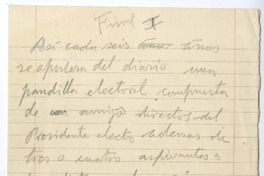 Final I
Así cada seis años años
se apodera del diario una
pandilla electoral compuesta
de amigos directos del
Presidente electo además de
tres o cuatro aspirantes a